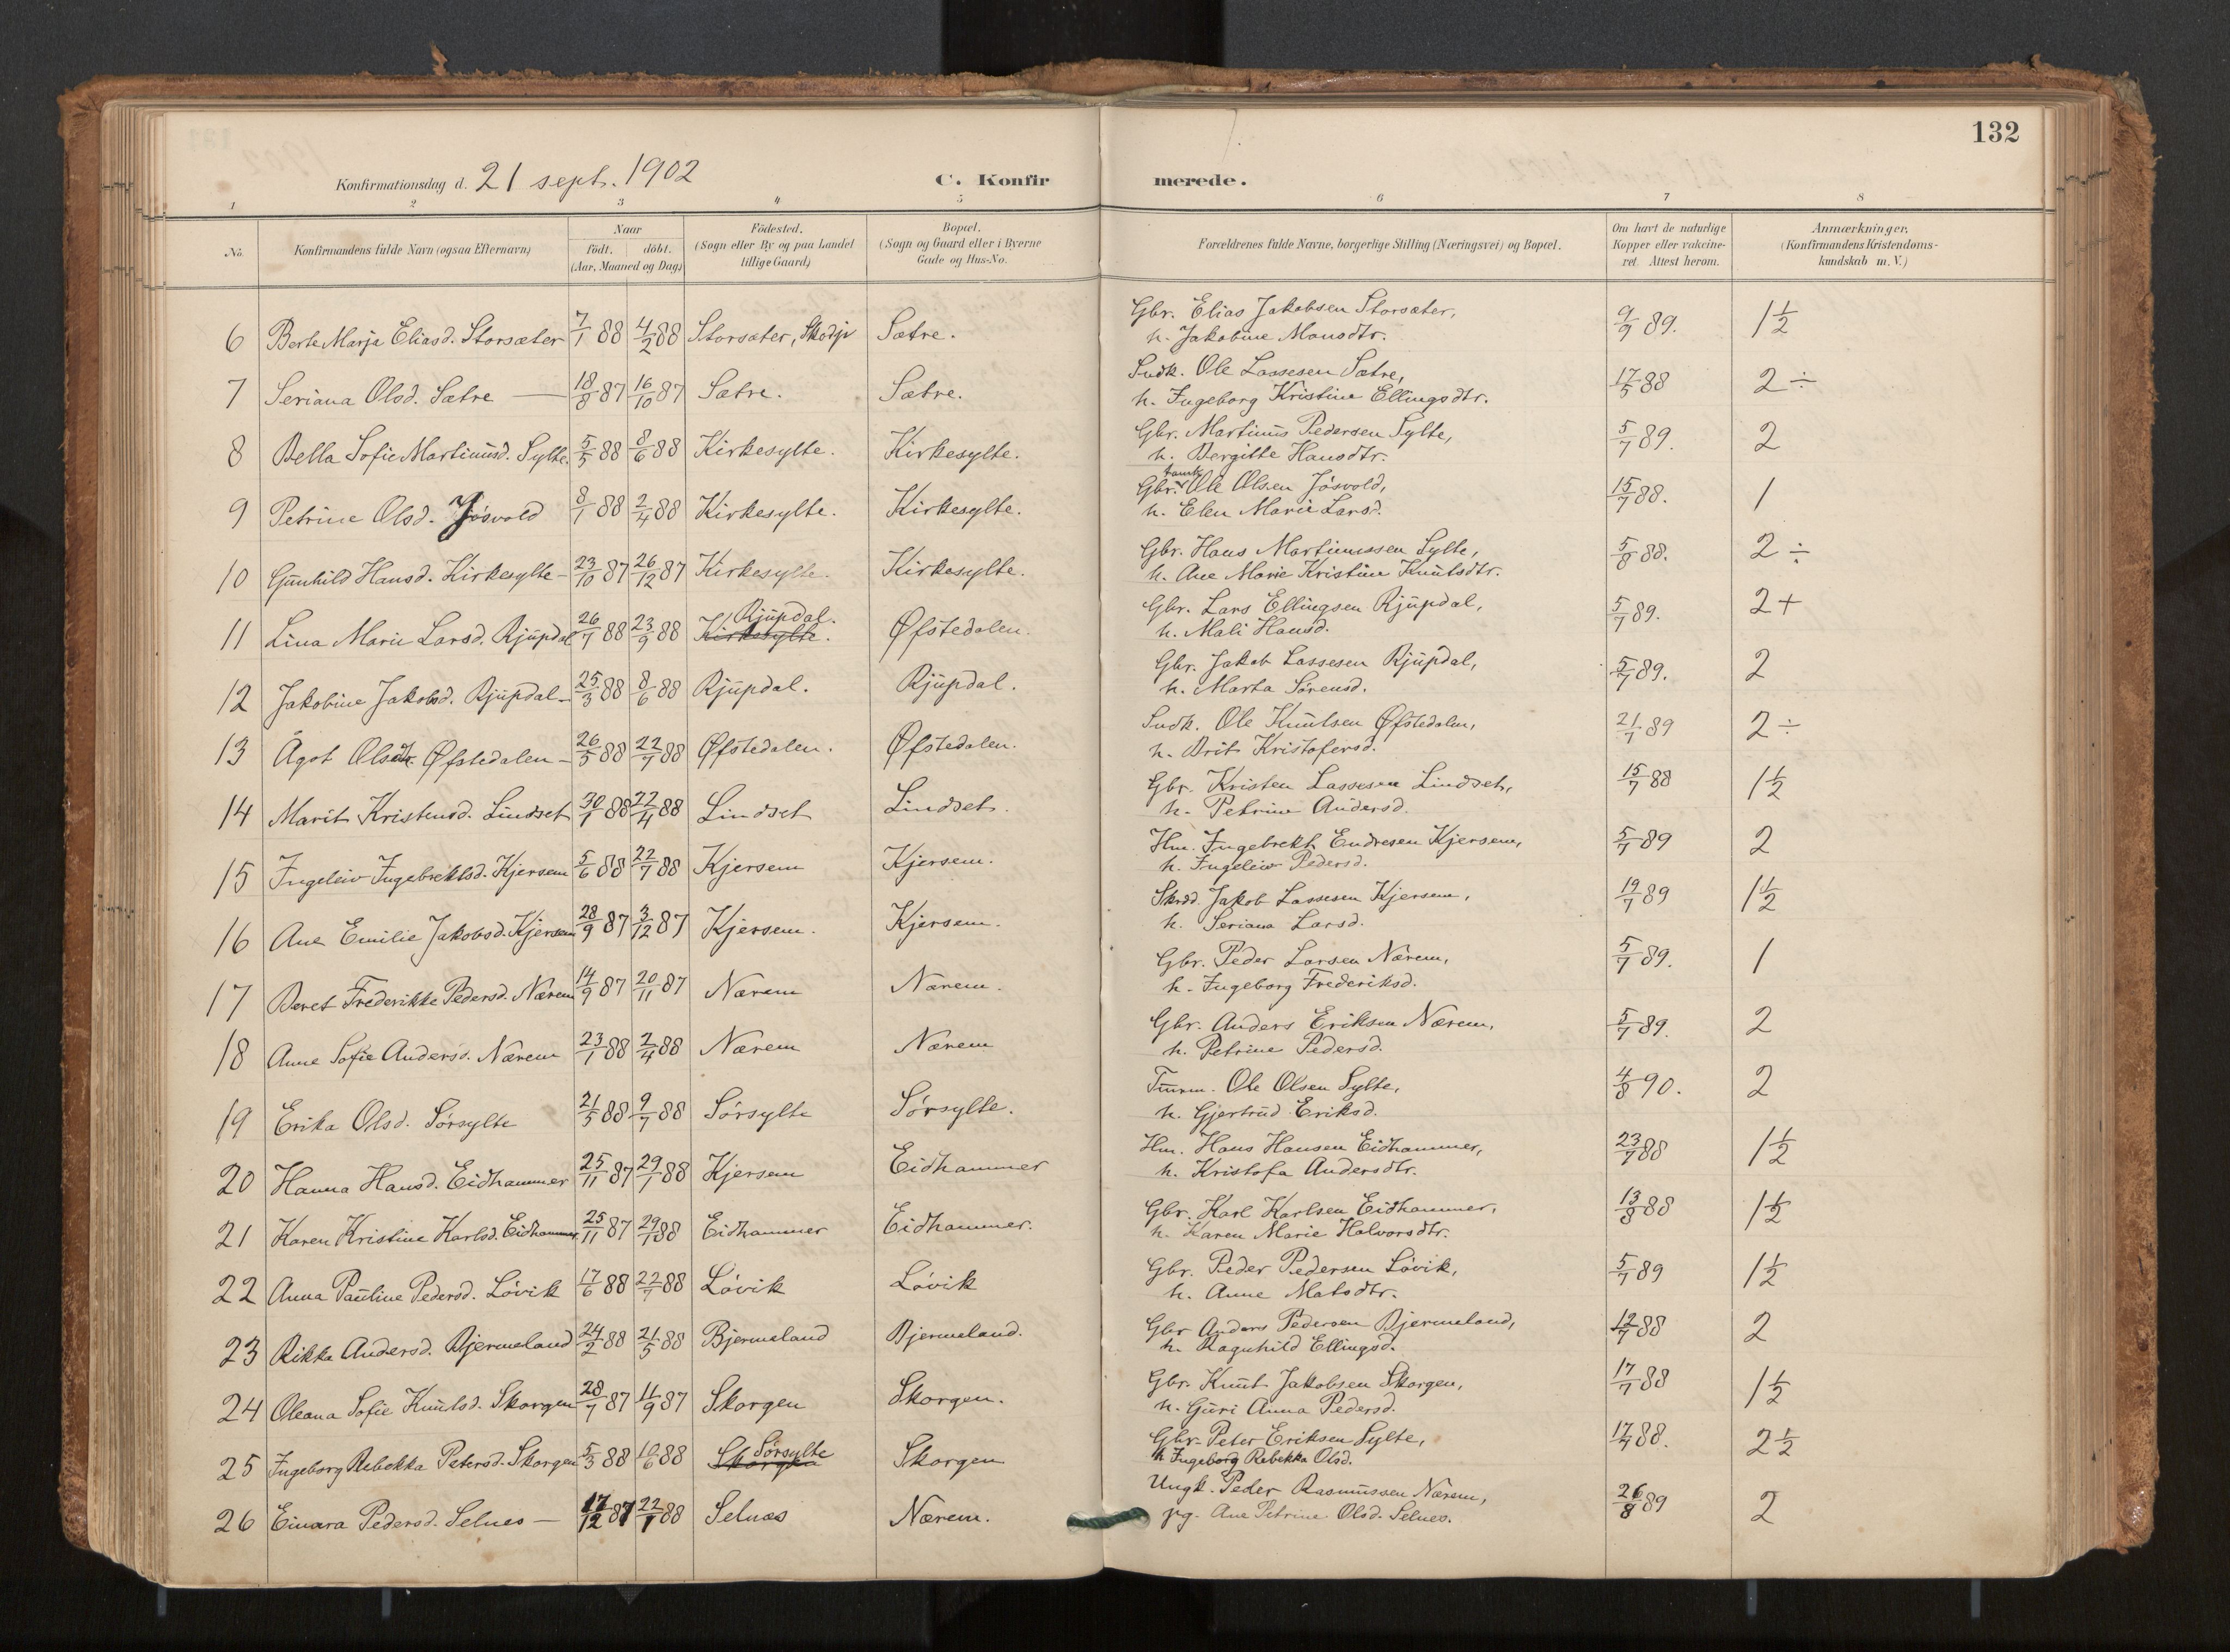 132
Konfirmationsdag d. 21 sept. 1902
C. Konfirmerede.
1 2 3 4 5 6 7 8
No. Konfirmandens fulde Navn (ogsaa Efternavn) Naar født. døbt. (Aar, Maaned og Dag) Fødested. (Sogn eller By og paa Landet tillige Gaard) Bopæl. (Sogn og Gaard eller i Byerne Gade og Hus-No. Forældrenes fulde Navne, borgerlige Stilling (Næringsvei) og Bopæl. Om havt de naturlige Kopper eller vakcineret. Attest herom. Anmærkninger. (Konfirmandens Kristendomskundskab m. V.)
6 Berte Marja Eliasd. Storsæter 7/1 88 4/2 88 Storsæter, Skodje Sætre. Gbr. Elias Jakobsen Storsæter, 9/9 89. 1½
h. Jakobine Monsdtr.
7 Seriana Olsd. Sætre — 18/8 87 16/10 87 Sætre. Sætre. Sudk. Ole Lassesen Sætre, 17/5 88 2 ÷
h. Ingeborg Kristine Ellingsdtr.
8 Bella Sofie Martinusd. Sylte. 5/5 88 8/6 88 Kirkesylte. Kirkesylte. Gbr. Martinus Pedersen Sylte, 5/7 89. 2
h. Bergitte Hansdtr.
9 Petrine Olsd. Jøsvold 8/1 88 2/4 88 Kirkesylte. Kirkesylte. Gbr. Ole Olsen Jøsvold, 15/7 88. 1
h. Elen Marie Larsd.
10 Gunhild Hansd. Kirkesylte — 23/10 87 26/12 87 Kirkesylte. Kirkesylte. Gbr. Hans Martinussen Sylte, 5/8 88. 2 ÷
h. Ane Marie Kristine Knutsdtr.
11 Lina Marie Larsd. Rjupdal 26/7 88 23/9 88 Kirkesylte. Rjupdal. Øfstedalen. Gbr. Lars Ellingsen Rjupdal, 5/7 89. 2 +
h. Mali Hansd.
12 Jakobine Jakobsd. Rjupdal — 25/3 88 8/6 88 Rjupdal. Rjupdal. Gbr. Jakob Lassesen Rjupdal, 5/7 89. 2
h. Marta Sørensd.
13 Ågot Olsdtr. Øfstedalen — 26/5 88 22/7 88 Øfstedalen. Øfstedalen. Sudk. Ole Knutsen Øfstedalen, 21/7 89 2 ÷
h. Brit Kristofersd.
14 Marit Kristensd. Lindset 30/1 88 22/4 88 Lindset Lindset. Gbr. Kristen Lassesen Lindset, 15/7 88 1½
h. Petrine Andersd.
15 Ingeleiv Ingebrektsd. Kjersem 5/6 88 22/7 88 Kjersem Kjersem. Hm. Ingebrekt Endresen Kjersem, 5/7 89 2
h. Ingeleiv Pedersd.
16 Ane Emilie Jakobsd. Kjersem 28/9 87 3/12 87 Kjersem. Kjersem. Skrdd. Jakob Lassesen Kjersem, 19/7 89 1½
h. Seriana Larsd.
17 Beret Frederikke Pedersd. Nærem 14/9 87 20/11 87 Nærem Nærem. Gbr. Peder Larsen Nærem, 5/7 89. 1
h. Ingeborg Frederiksd.
18 Anne Sofie Andersd. Nærem 23/1 88 2/4 88 Nærem Nærem Gbr. Anders Eriksen Nærem, 5/7 89. 2
h. Petrine Pedersd.
19 Erika Olsd. Sørsylte 21/5 88 9/7 88 Sørsylte Sørsylte. Tmrm. Ole Olsen Sylte, 4/8 90. 2
h. Gjertrud Eriksd.
20 Hanna Hansd. Eidhammer 25/11 87 29/1 88 Kjersem Eidhammer Hm. Hans Hansen Eidhammer, 23/7 88 1½
h. Kristofa Andersdtr.
21 Karen Kristine Karlsd. Eidhammer 25/11 87 29/1 88 Eidhammer Eidhammer. Gbr. Karl Karlsen Eidhammer, 13/8 88 1½
h. Karen Marie Halvorsdtr.
22 Anna Pauline Pedersd. Løvik 17/6 88 22/7 88 Løvik Løvik Gbr. Peder Pedersen Løvik, 5/7 89 1½
h. Anne Matsdtr.
23 Rikka Andersd. Bjermeland 24/2 88 21/5 88 Bjermeland Bjermeland. Gbr Anders Pedersen Bjermeland, 12/7 88 2
h. Ragnhild Ellingsd.
24 Oleana Sofie Knutsd. Skorgen 28/7 87 11/9 87 Skorgen Skorgen. Gbr. Knut Jakobsen Skorgen, 17/7 88 1½
h. Guri Anna Pedersd.
25 Ingeborg Rebekka Petersd. Skorgen 5/3 88 10/6 88 Skorgen Sørsylte Skorgen Gbr. Peter Eriksen Sylte, 17/7 88. 2½
h Ingeborg Rebekka Olsd.
26 Einara Pedersd. Selnes — 17/12 87 22/1 88 Selnæs Nærem. Ungk. Peder Rasmussen Nærem, 26/8 89 2
pg. Ane Petrine Olsd. Selnes.